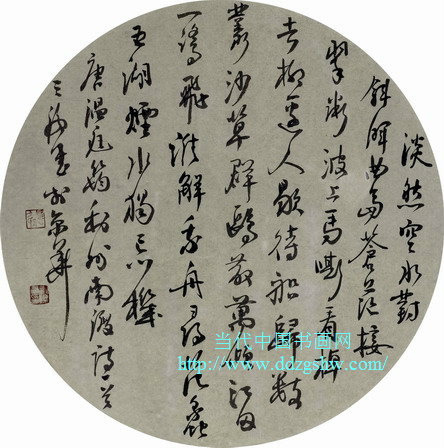 淡然空水對
斜暉曲島蒼茫接
翠微波上馬嘶看棹
去柳邊人歇待船歸數
叢沙草群鷗散萬頃江田
一鷺飛誰解乘舟尋范蠡
五湖煙水獨忘機
唐溫庭筠利州南渡詩一首
書於京華
当代中国书画网
http://www.ddzgshw.com/